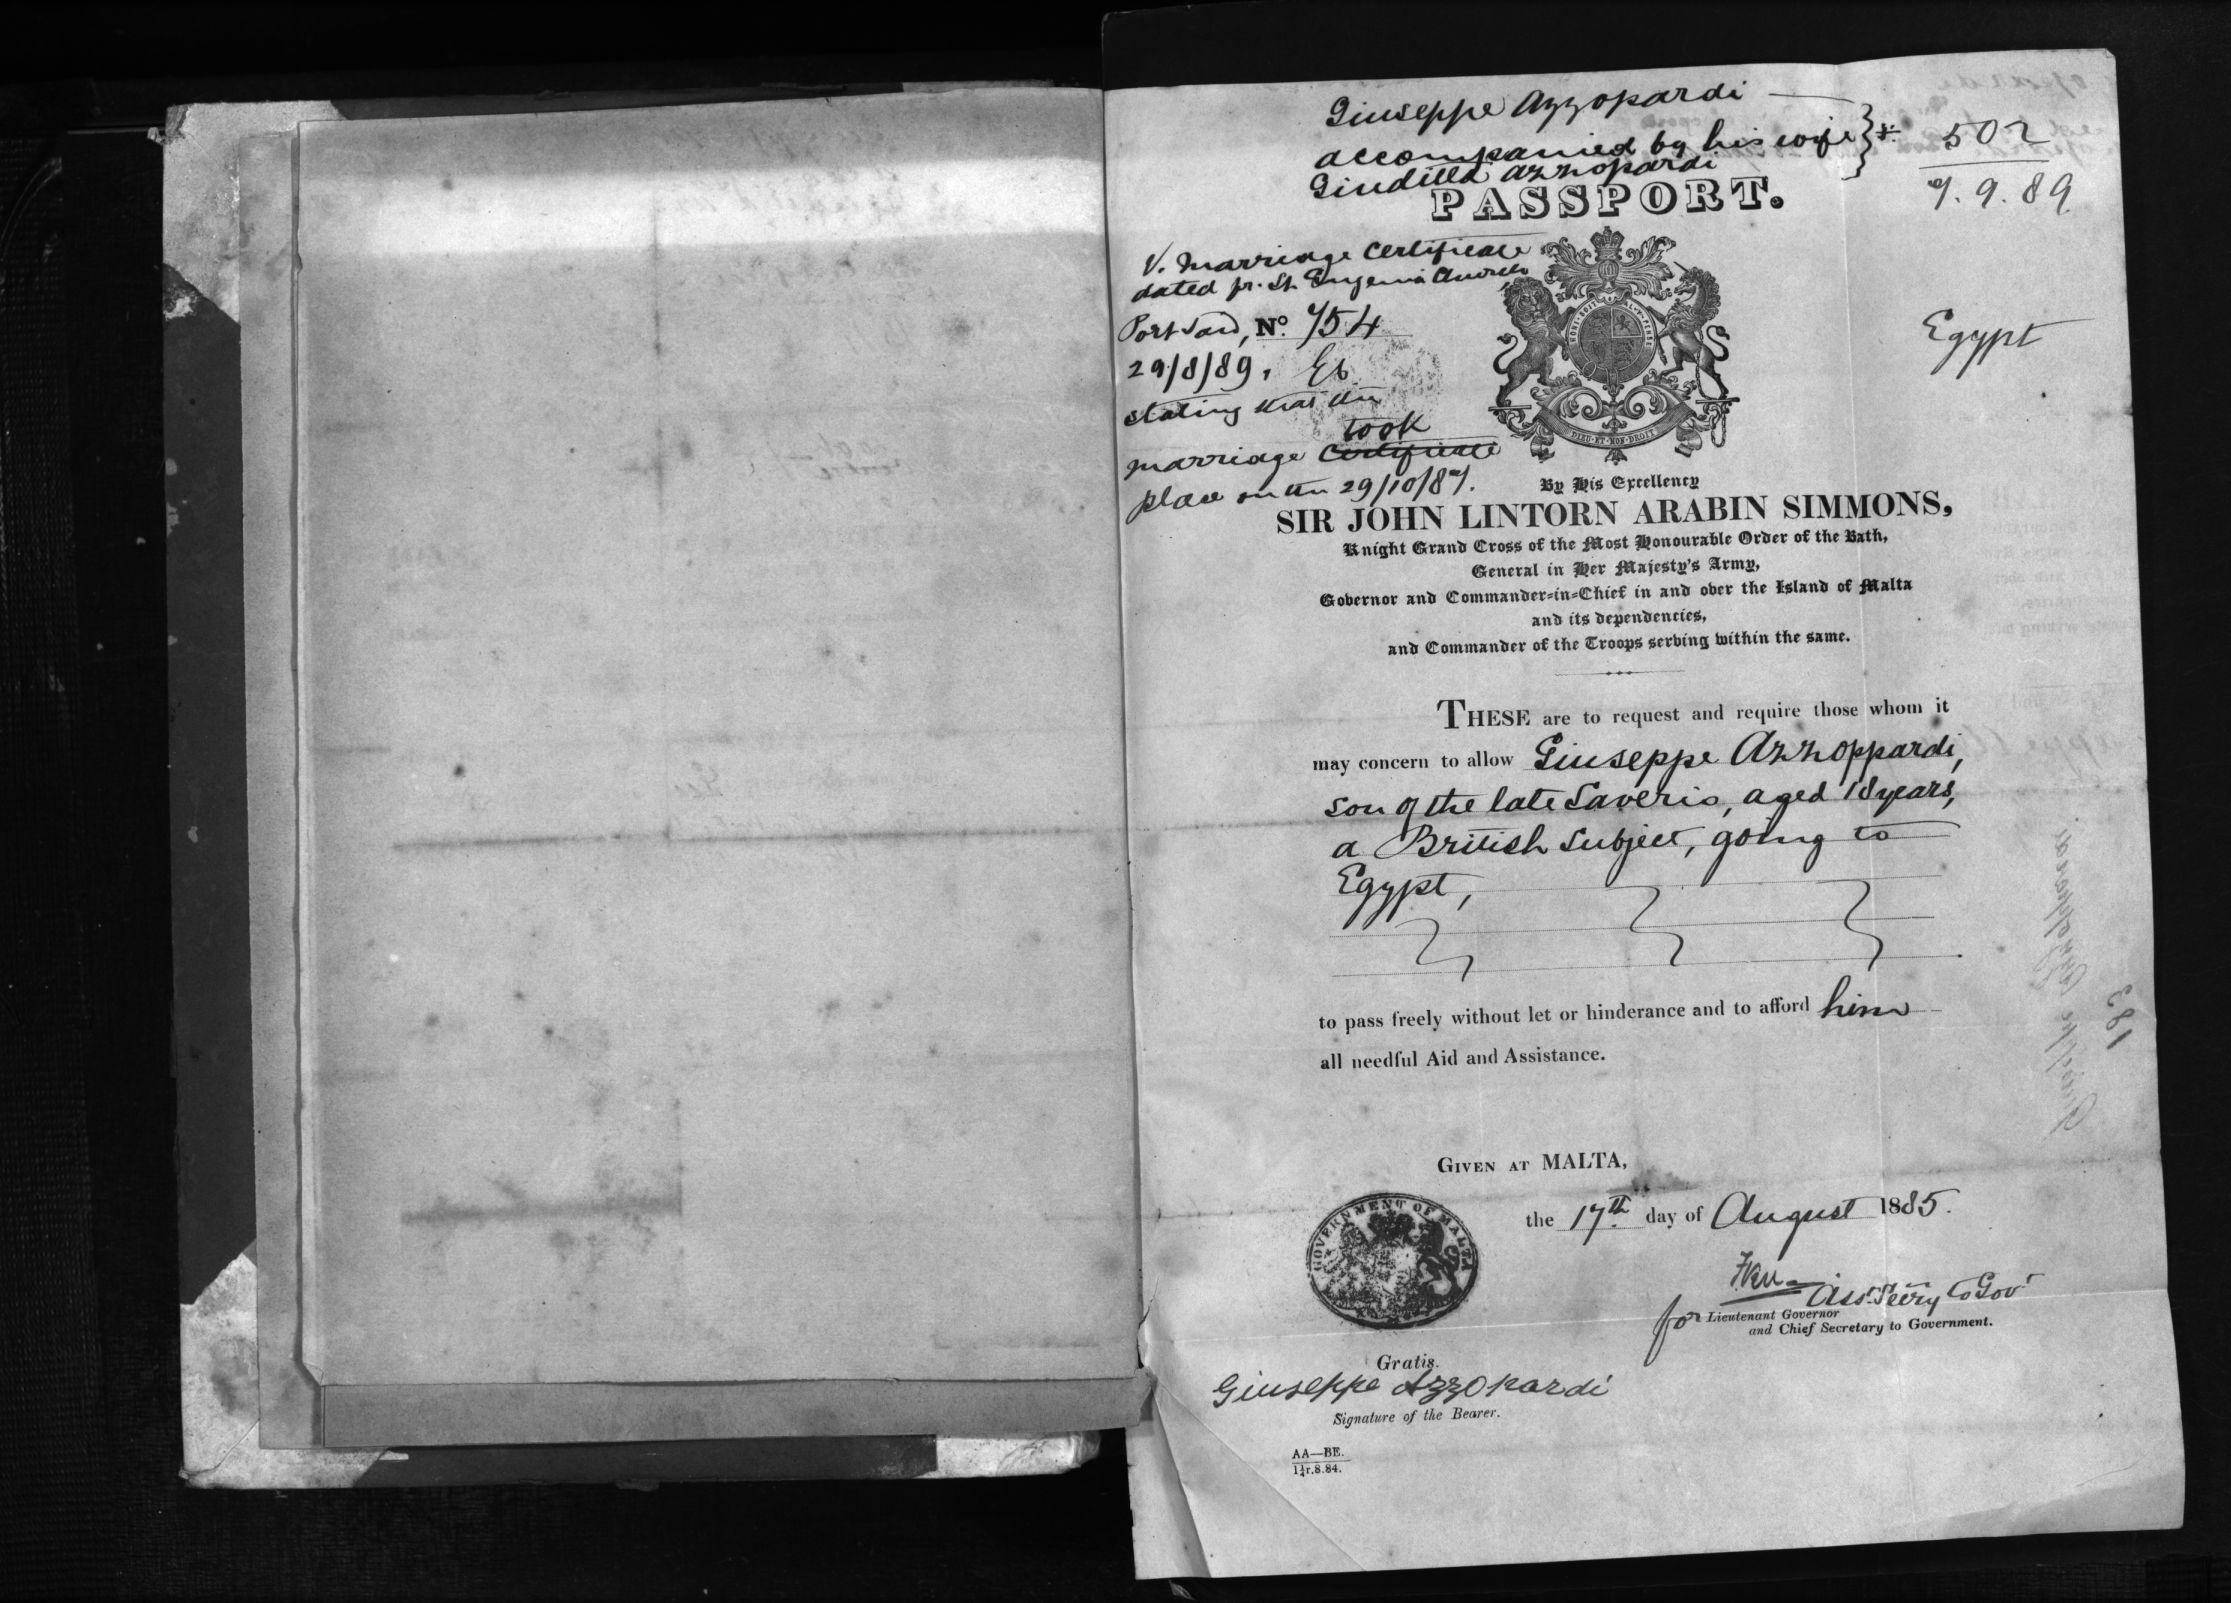 Giuseppe Azzopardi
accompanied by his wife
Giuditta Azzopardi
502
7. 9. 89
PASSPORT.
V. Marriage Certificate
dated fr. St. Eugenia Church,
Port Said, No. 754
29/8/89,
stating that the
took
marriage Certificate
place on the 29/10/87.
Egypt
HONI SOIT QUI MAL Y PENSE
DIEU ET MON DROIT
By His Excellency
SIR JOHN LINTORN ARABIN SIMMONS,
Knight Grand Cross of the Most Honourable Order of the Bath,
General in Her Majesty's Army,
Governor and Commander-in-Chief in and over the Island of Malta
and its dependencies,
and Commander of the Troops serving within the same.
THESE are to request and require those whom it
may concern to allow Giuseppe Azzoppardi,
son of the late Saverio, aged 18 years,
a British Subject, going to
Egypt,
to pass freely without let or hinderance and to afford him
all needful Aid and Assistance.
GIVEN AT MALTA,
the 17th day of August 1885.
GOVERNMENT OF MALTA
Asst. Secry to Govt
for Lieutenant Governor
and Chief Secretary to Government.
Gratis.
Giuseppe Azzopardi
Signature of the Bearer.
AA—BE.
1¼r.8.84.